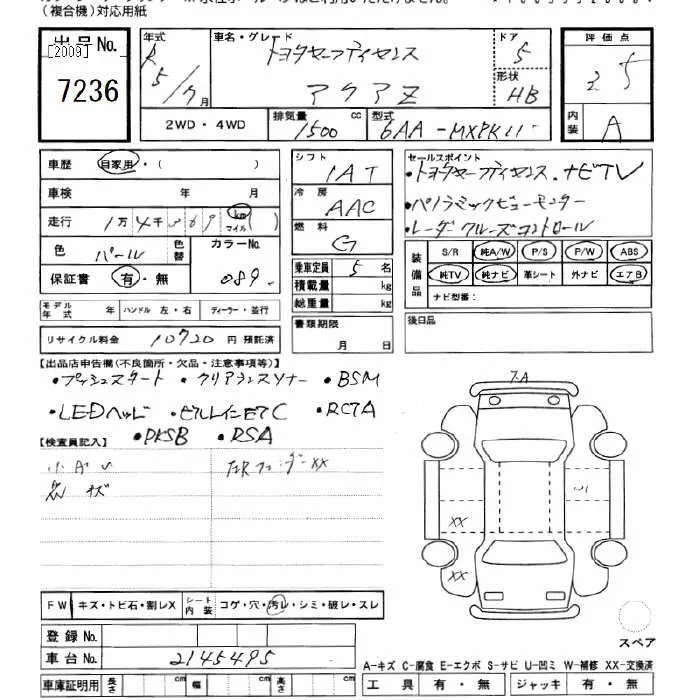 (複合機)対応用紙
出品No.
[2009]
7236
年式
R5/7月
車名・グレード
トヨタセーフティセンス
アクア Z
ドア
5
形状
HB
評価点
5
内装
A
2WD・4WD
排気量
1500 cc
型式
6AA-MXPK11
車歴
自家用・( )
車検 年 月
走行 1万4千369 km マイル( )
色 パール 色替 カラーNo.
089
保証書 有・無
シフト
1AT
冷房
AAC
燃料
G
乗車定員 5名
積載量 kg
総重量 kg
セールスポイント
・トヨタセーフティセンス.ナビTV
・パノラミックビューモニター
・レーダークルーズコントロール
装備品
S/R 純A/W P/S P/W ABS
純TV 純ナビ 革シート 外ナビ エアB
ナビ型番:
モデル年式 年 ハンドル 左・右 ディーラー・並行
書類期限
月 日
後日品
リサイクル料金 10720 円 預託済
【出品店申告欄(不良箇所・欠品・注意事項等)】
・プッシュスタート ・クリアランスソナー ・BSM
・LEDヘッド ・ビルトインETC ・RCTA
・PKSB ・RSA
【検査員記入】
小キズ
XX
7.A
XX
XX
FW キズ・トビ石・割レX シート内装 コゲ・穴・汚レ・シミ・破レ・スレ
登録No.
車台No. 2145495
スペア
A-キズ C-腐食 E-エクボ S-サビ U-凹ミ W-補修 XX-交換済
車庫証明用 長さ cm 幅 cm 高さ cm
工具 有・無 ジャッキ 有・無